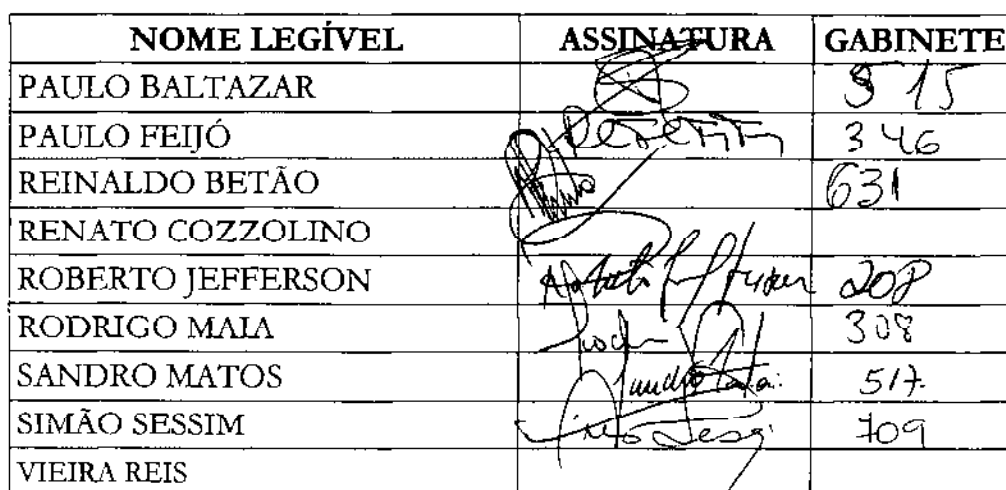 NOME LEGÍVEL ASSINATURA GABINETE
PAULO BALTAZAR 515
PAULO FEIJÓ 346
REINALDO BETÃO 631
RENATO COZZOLINO
ROBERTO JEFFERSON Roberto Jefferson 208
RODRIGO MAIA 308
SANDRO MATOS 517
SIMÃO SESSIM 709
VIEIRA REIS